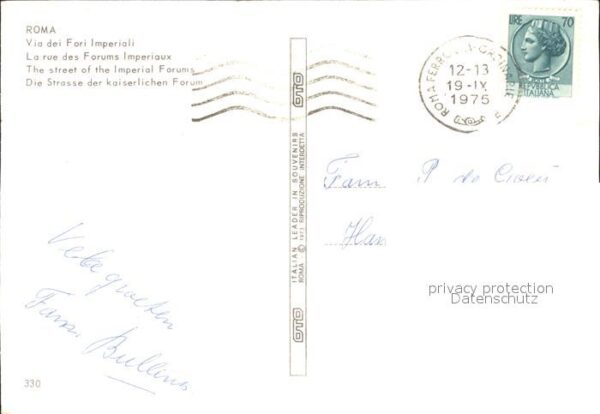 ROMA
Via dei Fori Imperiali
La rue des Forums Imperiaux
The street of the Imperial Forums
Die Strasse der kaiserlichen Forum
LIRE 70
REPVBBLICA
ITALIANA
ROMA FERROVIA
12-13
19-IX
1975
OTO
ITALIAN LEADER IN SOUVENIRS
ROMA © 1973 RIPRODUZIONE INTERDETTA
OTO
Fam P de
Han
Vele groeten
Fam. Bullens
privacy protection
Datenschutz
330